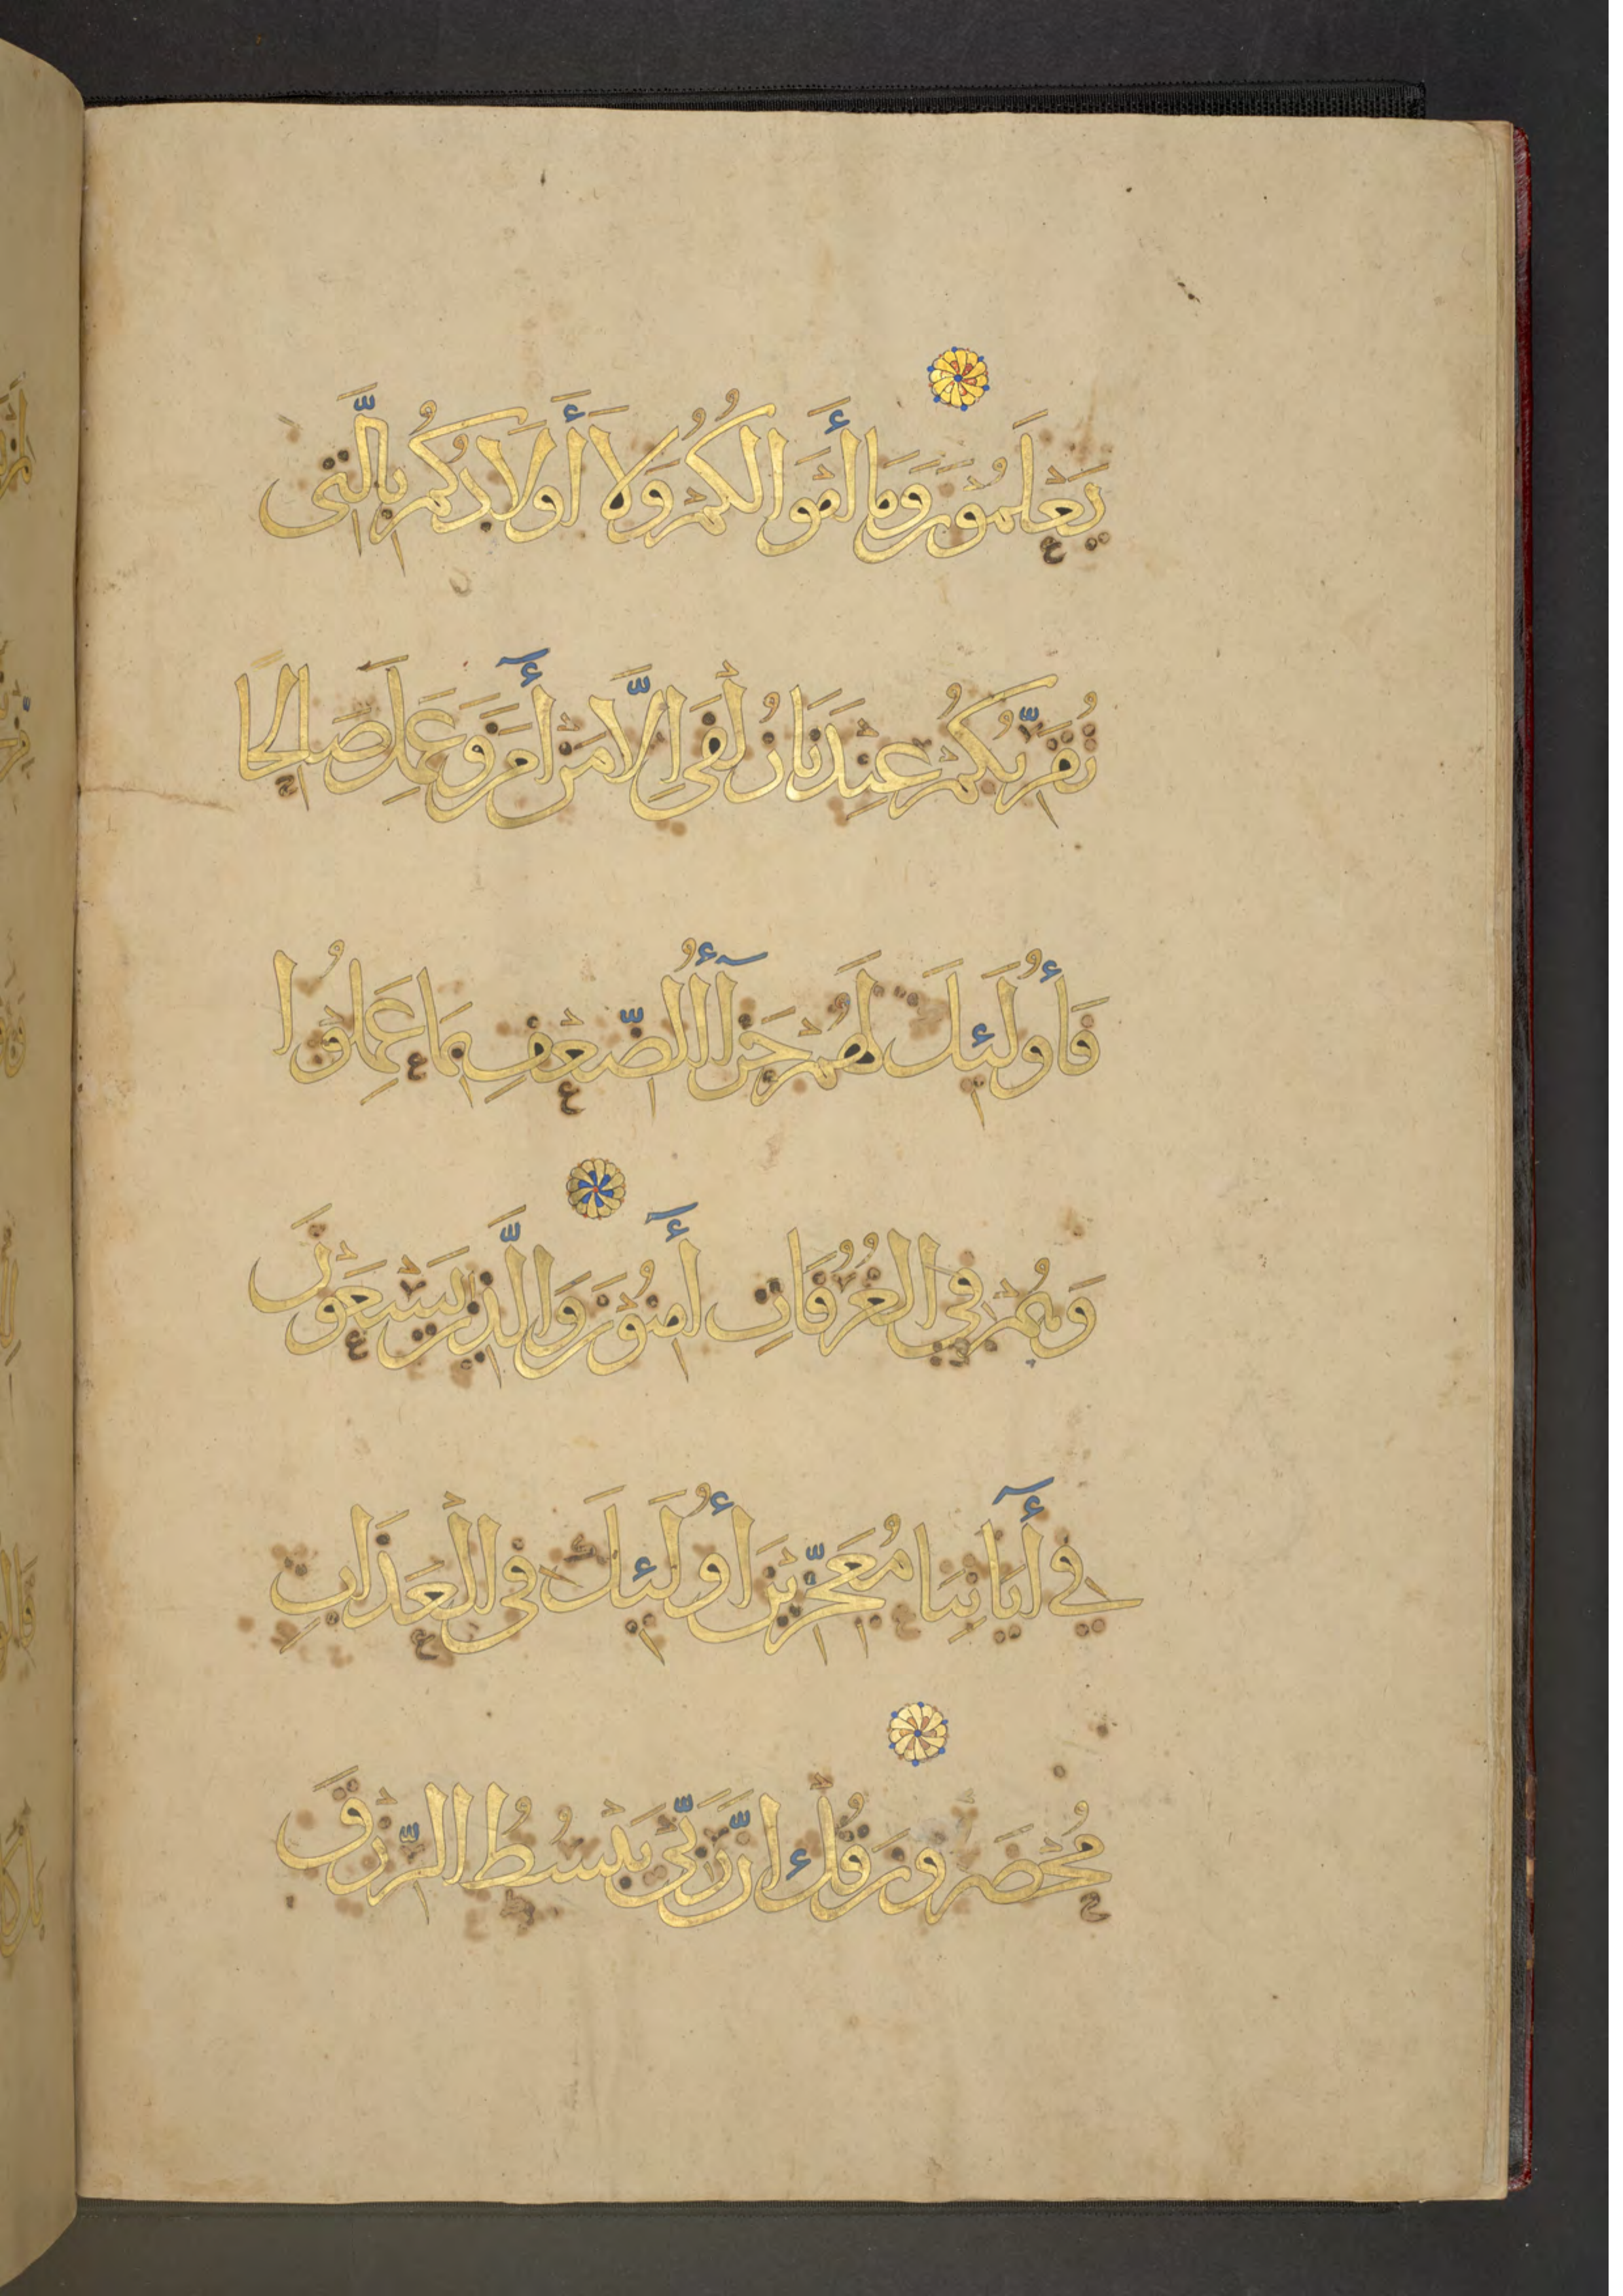 يَعْلَمُونَ وَمَا أَمْوَالُكُمْ وَلَا أَوْلَادُكُمْ بِالَّتِي
تُقَرِّبُكُمْ عِنْدَنَا زُلْفَى إِلَّا مَنْ آمَنَ وَعَمِلَ صَالِحًا
فَأُولَئِكَ لَهُمْ جَزَآءُ الضِّعْفِ بِمَا عَمِلُوا
وَهُمْ فِي الْغُرُفَاتِ آمِنُونَ وَالَّذِينَ يَسْعَوْنَ
فِي آيَاتِنَا مُعَجِّزِينَ أُولَئِكَ فِي الْعَذَابِ
مُحْضَرُونَ قُلْ إِنَّ رَبِّي يَبْسُطُ الرِّزْقَ